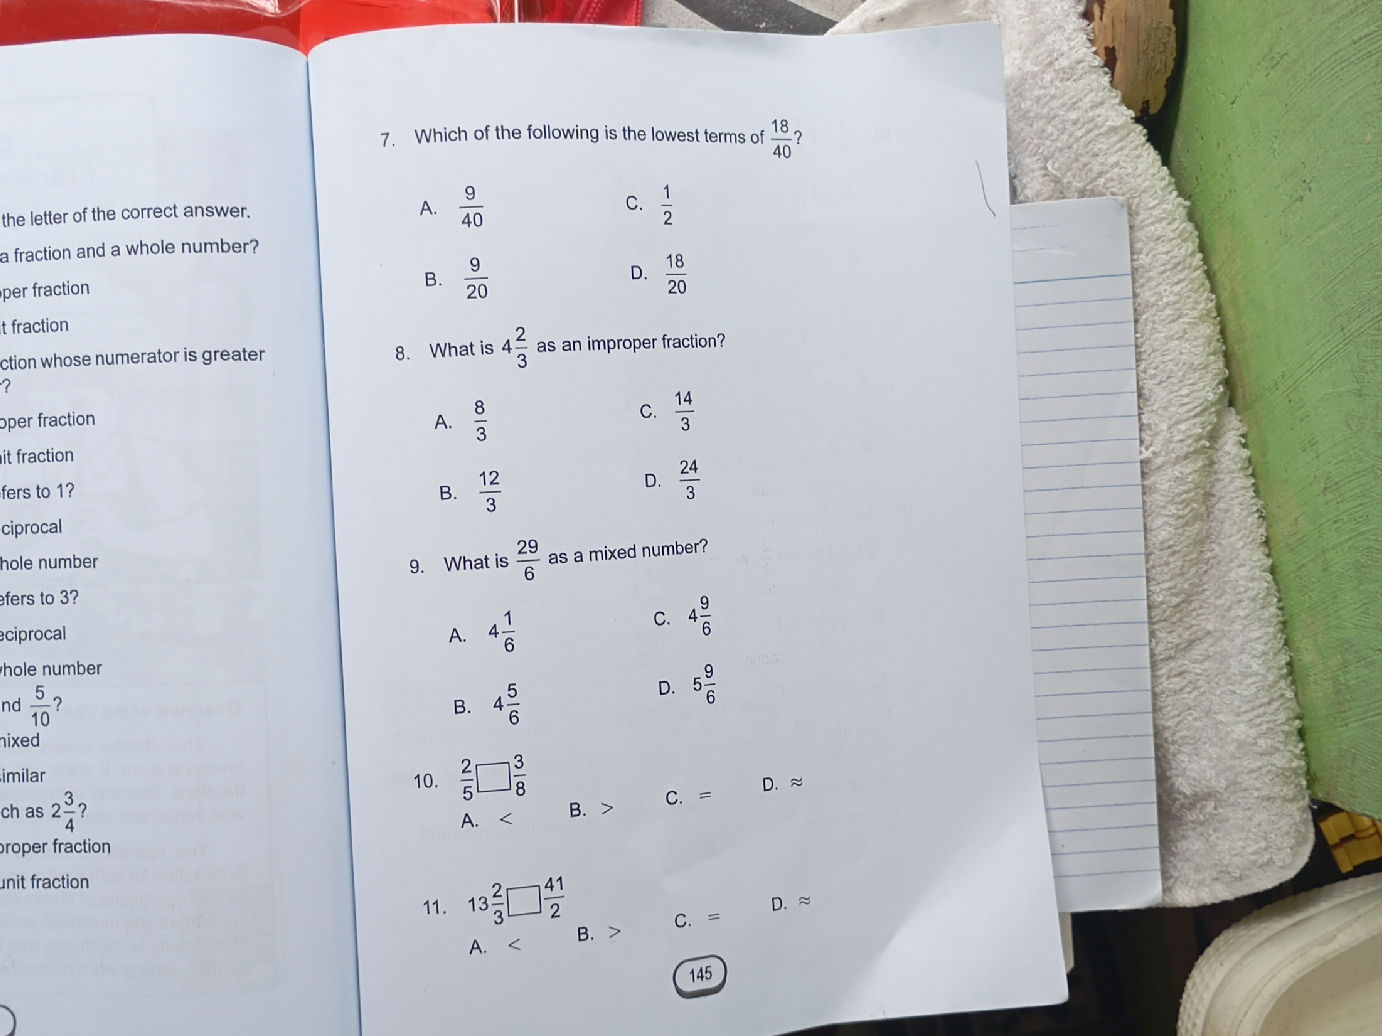 the letter of the correct answer.
a fraction and a whole number?
per fraction
t fraction
ction whose numerator is greater
?
oper fraction
it fraction
fers to 1?
ciprocal
hole number
efers to 3?
eciprocal
hole number
nd 5/10?
mixed
similar
ch as 2 3/4?
proper fraction
unit fraction
7. Which of the following is the lowest terms of 18/40?
A. 9/40 C. 1/2
B. 9/20 D. 18/20
8. What is 4 2/3 as an improper fraction?
A. 8/3 C. 14/3
B. 12/3 D. 24/3
9. What is 29/6 as a mixed number?
A. 4 1/6 C. 4 9/6
B. 4 5/6 D. 5 9/6
10. 2/5 □ 3/8
A. < B. > C. = D. ≈
11. 13 2/3 □ 41/2
A. < B. > C. = D. ≈
145